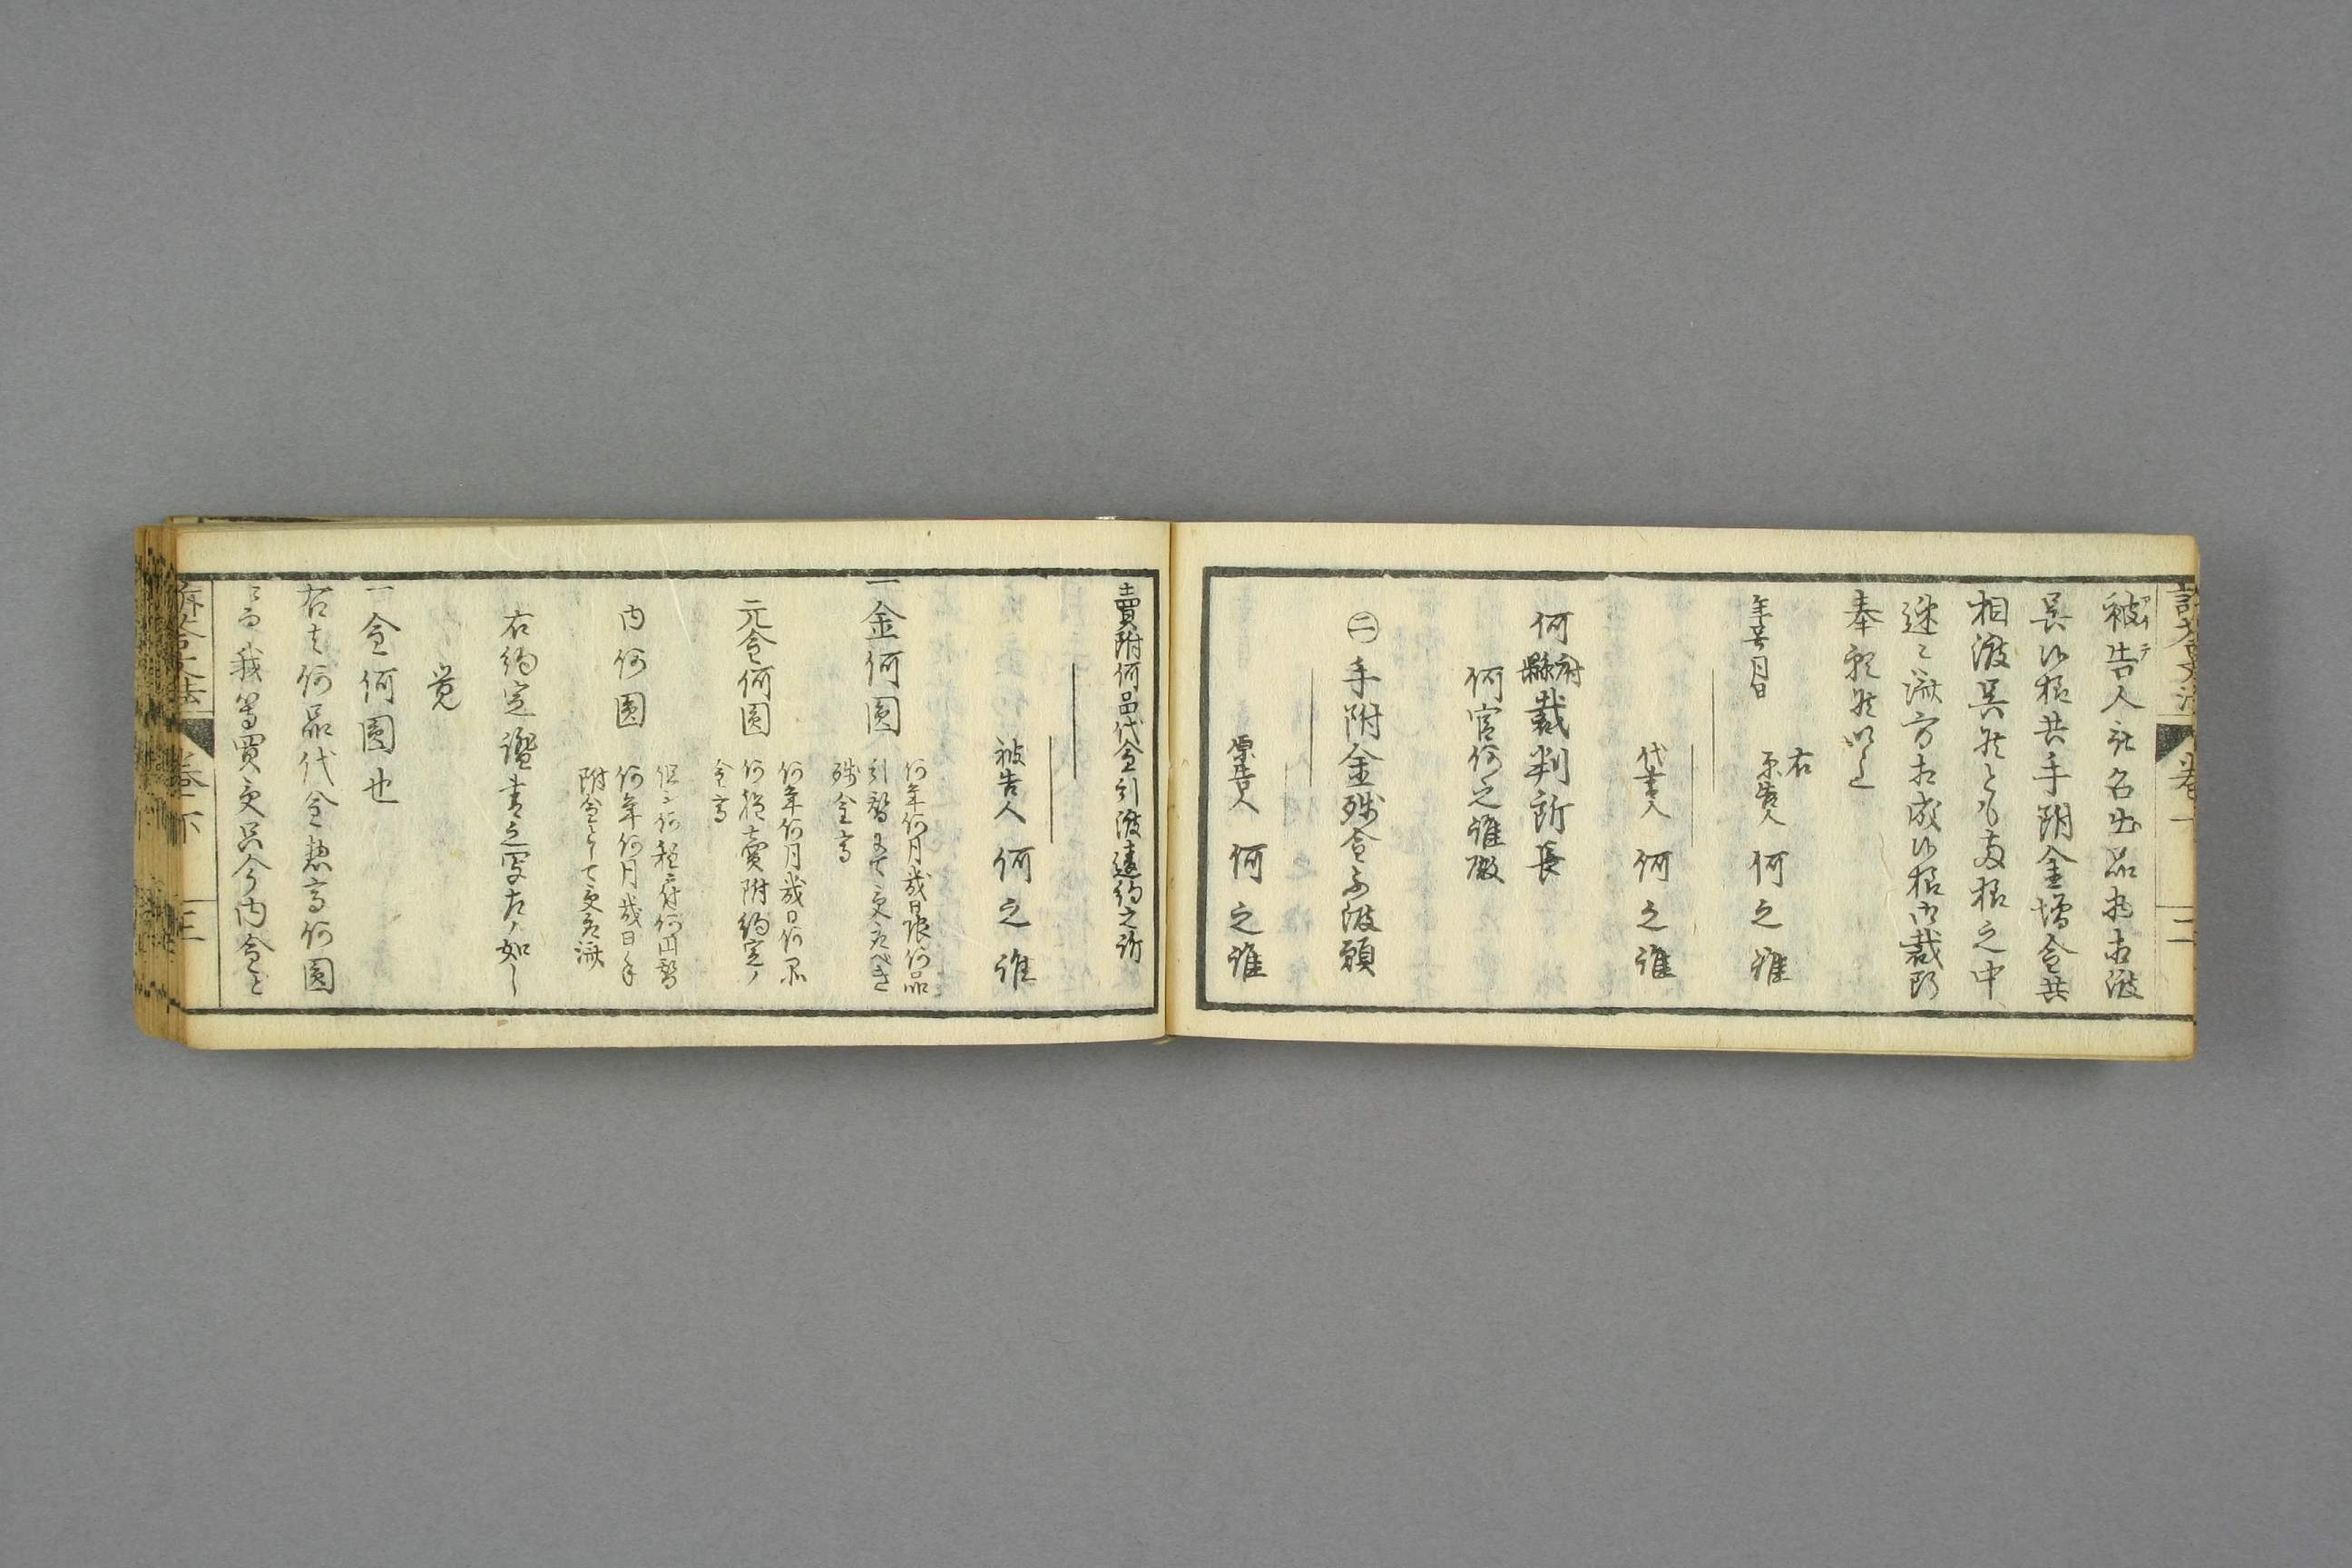 訴答文法
巻下
二
被告人 名出品相渡
呉候様共手附金増金共
相渡呉候とも両様之中
速ニ済方相成候様御裁断
奉願候以上
年号月日
右
原告人 何之誰
代書人 何之誰
何府縣裁判所長
何官何之誰殿
㊁ 手附金残金不渡願
原告人 何之誰
賣附何品代金引渡違約之訴
被告人 何之誰
一金何圓
何年何月幾日限何品
引替ニて受取べき
残金高
元金何圓
何年何月幾日何品
何程賣附約定ノ
金高
内何圓
但シ何程ニ付何円替
何年何月幾日手
附金として受取済
右約定證書之写左ノ如し
覚
一金何圓也
右は何品代金惣高何圓
ニ而我等買受只今内金と
訴答文法
巻下
三